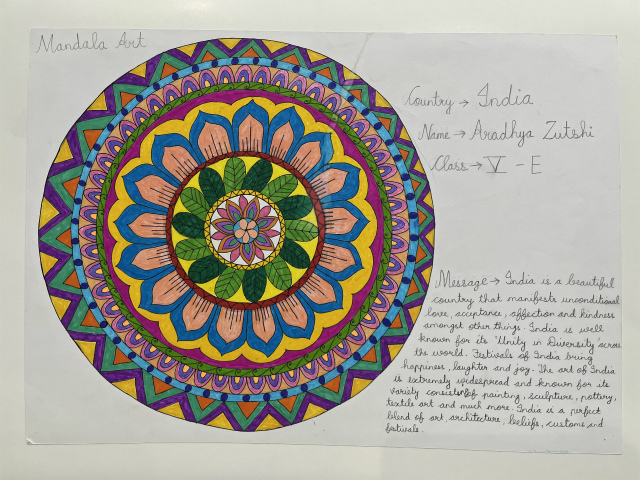 Mandala Art
Country → India
Name → Aradhya Zutshi
Class → V - E
Message → India is a beautiful
country that manifests unconditional
love, acceptance, affection and kindness
amongst other things. India is well
known for its 'Unity in Diversity' across
the world. Festivals of India bring
happiness, laughter and joy. The art of India
is extremely widespread and known for its
variety consists of painting, sculpture, pottery,
textile art and much more. India is a perfect
blend of art, architecture, beliefs, customs and
festivals.